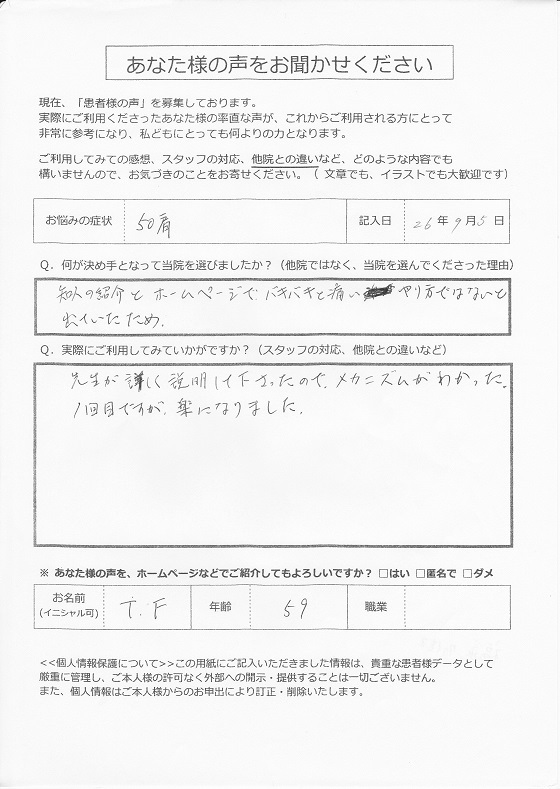 あなた様の声をお聞かせください
現在、「患者様の声」を募集しております。
実際にご利用くださったあなた様の率直な声が、これからご利用される方にとって
非常に参考になり、私どもにとっても何よりの力となります。
ご利用してみての感想、スタッフの対応、他院との違いなど、どのような内容でも
構いませんので、お気づきのことをお寄せください。（ 文章でも、イラストでも大歓迎です）
お悩みの症状 50肩 記入日 26年9月5日
Q．何が決め手となって当院を選びましたか？（他院ではなく、当院を選んでくださった理由）
知人の紹介と ホームページで バキバキと痛い やり方ではないと
出ていたため.
Q．実際にご利用してみていかがですか？（スタッフの対応、他院との違いなど）
先生が詳しく説明して下さったので、メカニズムがわかった.
1回目ですが、楽になりました.
※ あなた様の声を、ホームページなどでご紹介してもよろしいですか？ □はい □匿名で □ダメ
お名前 T.F 年齢 59 職業
(イニシャル可)
<<個人情報保護について>>この用紙にご記入いただきました情報は、貴重な患者様データとして
厳重に管理し、ご本人様の許可なく外部への開示・提供することは一切ございません。
また、個人情報はご本人様からのお申出により訂正・削除いたします。